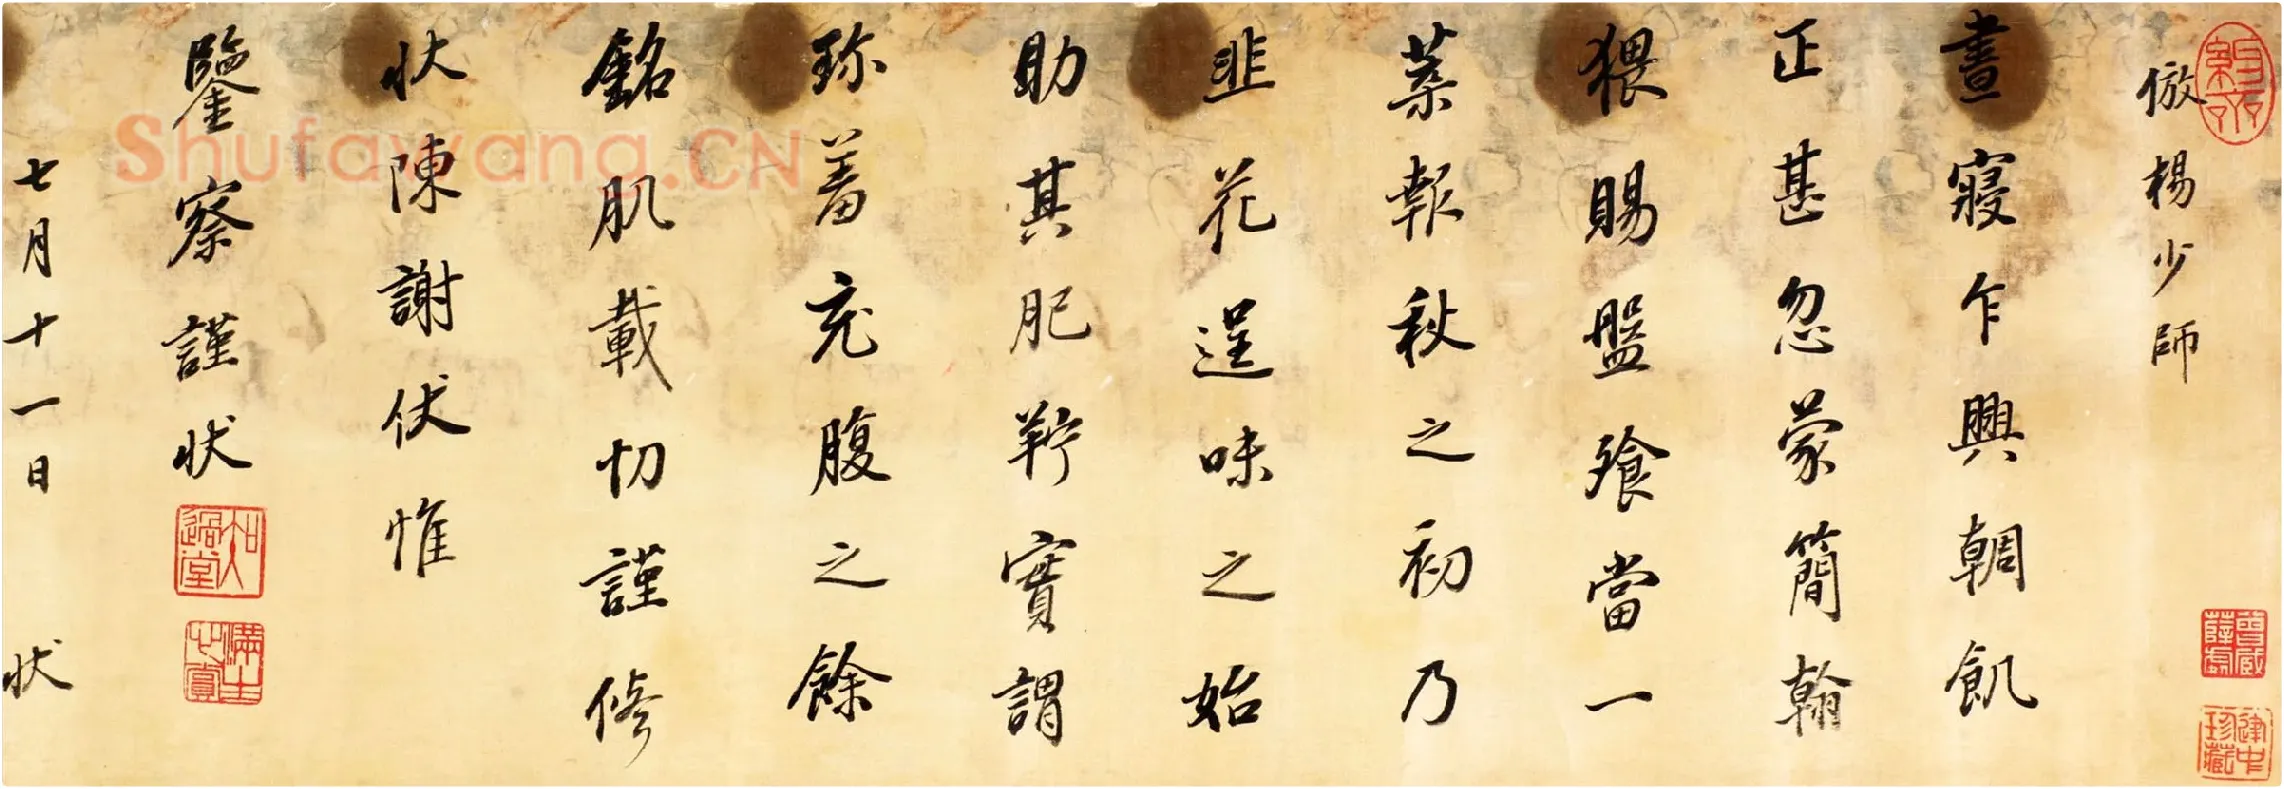 倣楊少師
晝寢乍興輖飢
正甚忽蒙簡翰
猥賜盤飱當一
葉報秋之初乃
韭花逞味之始
助其肥羜實謂
珎羞充腹之餘
銘肌載切謹修
狀陳謝伏惟
鑒察謹狀
七月十一日 狀
知不足
Shufawang.CN